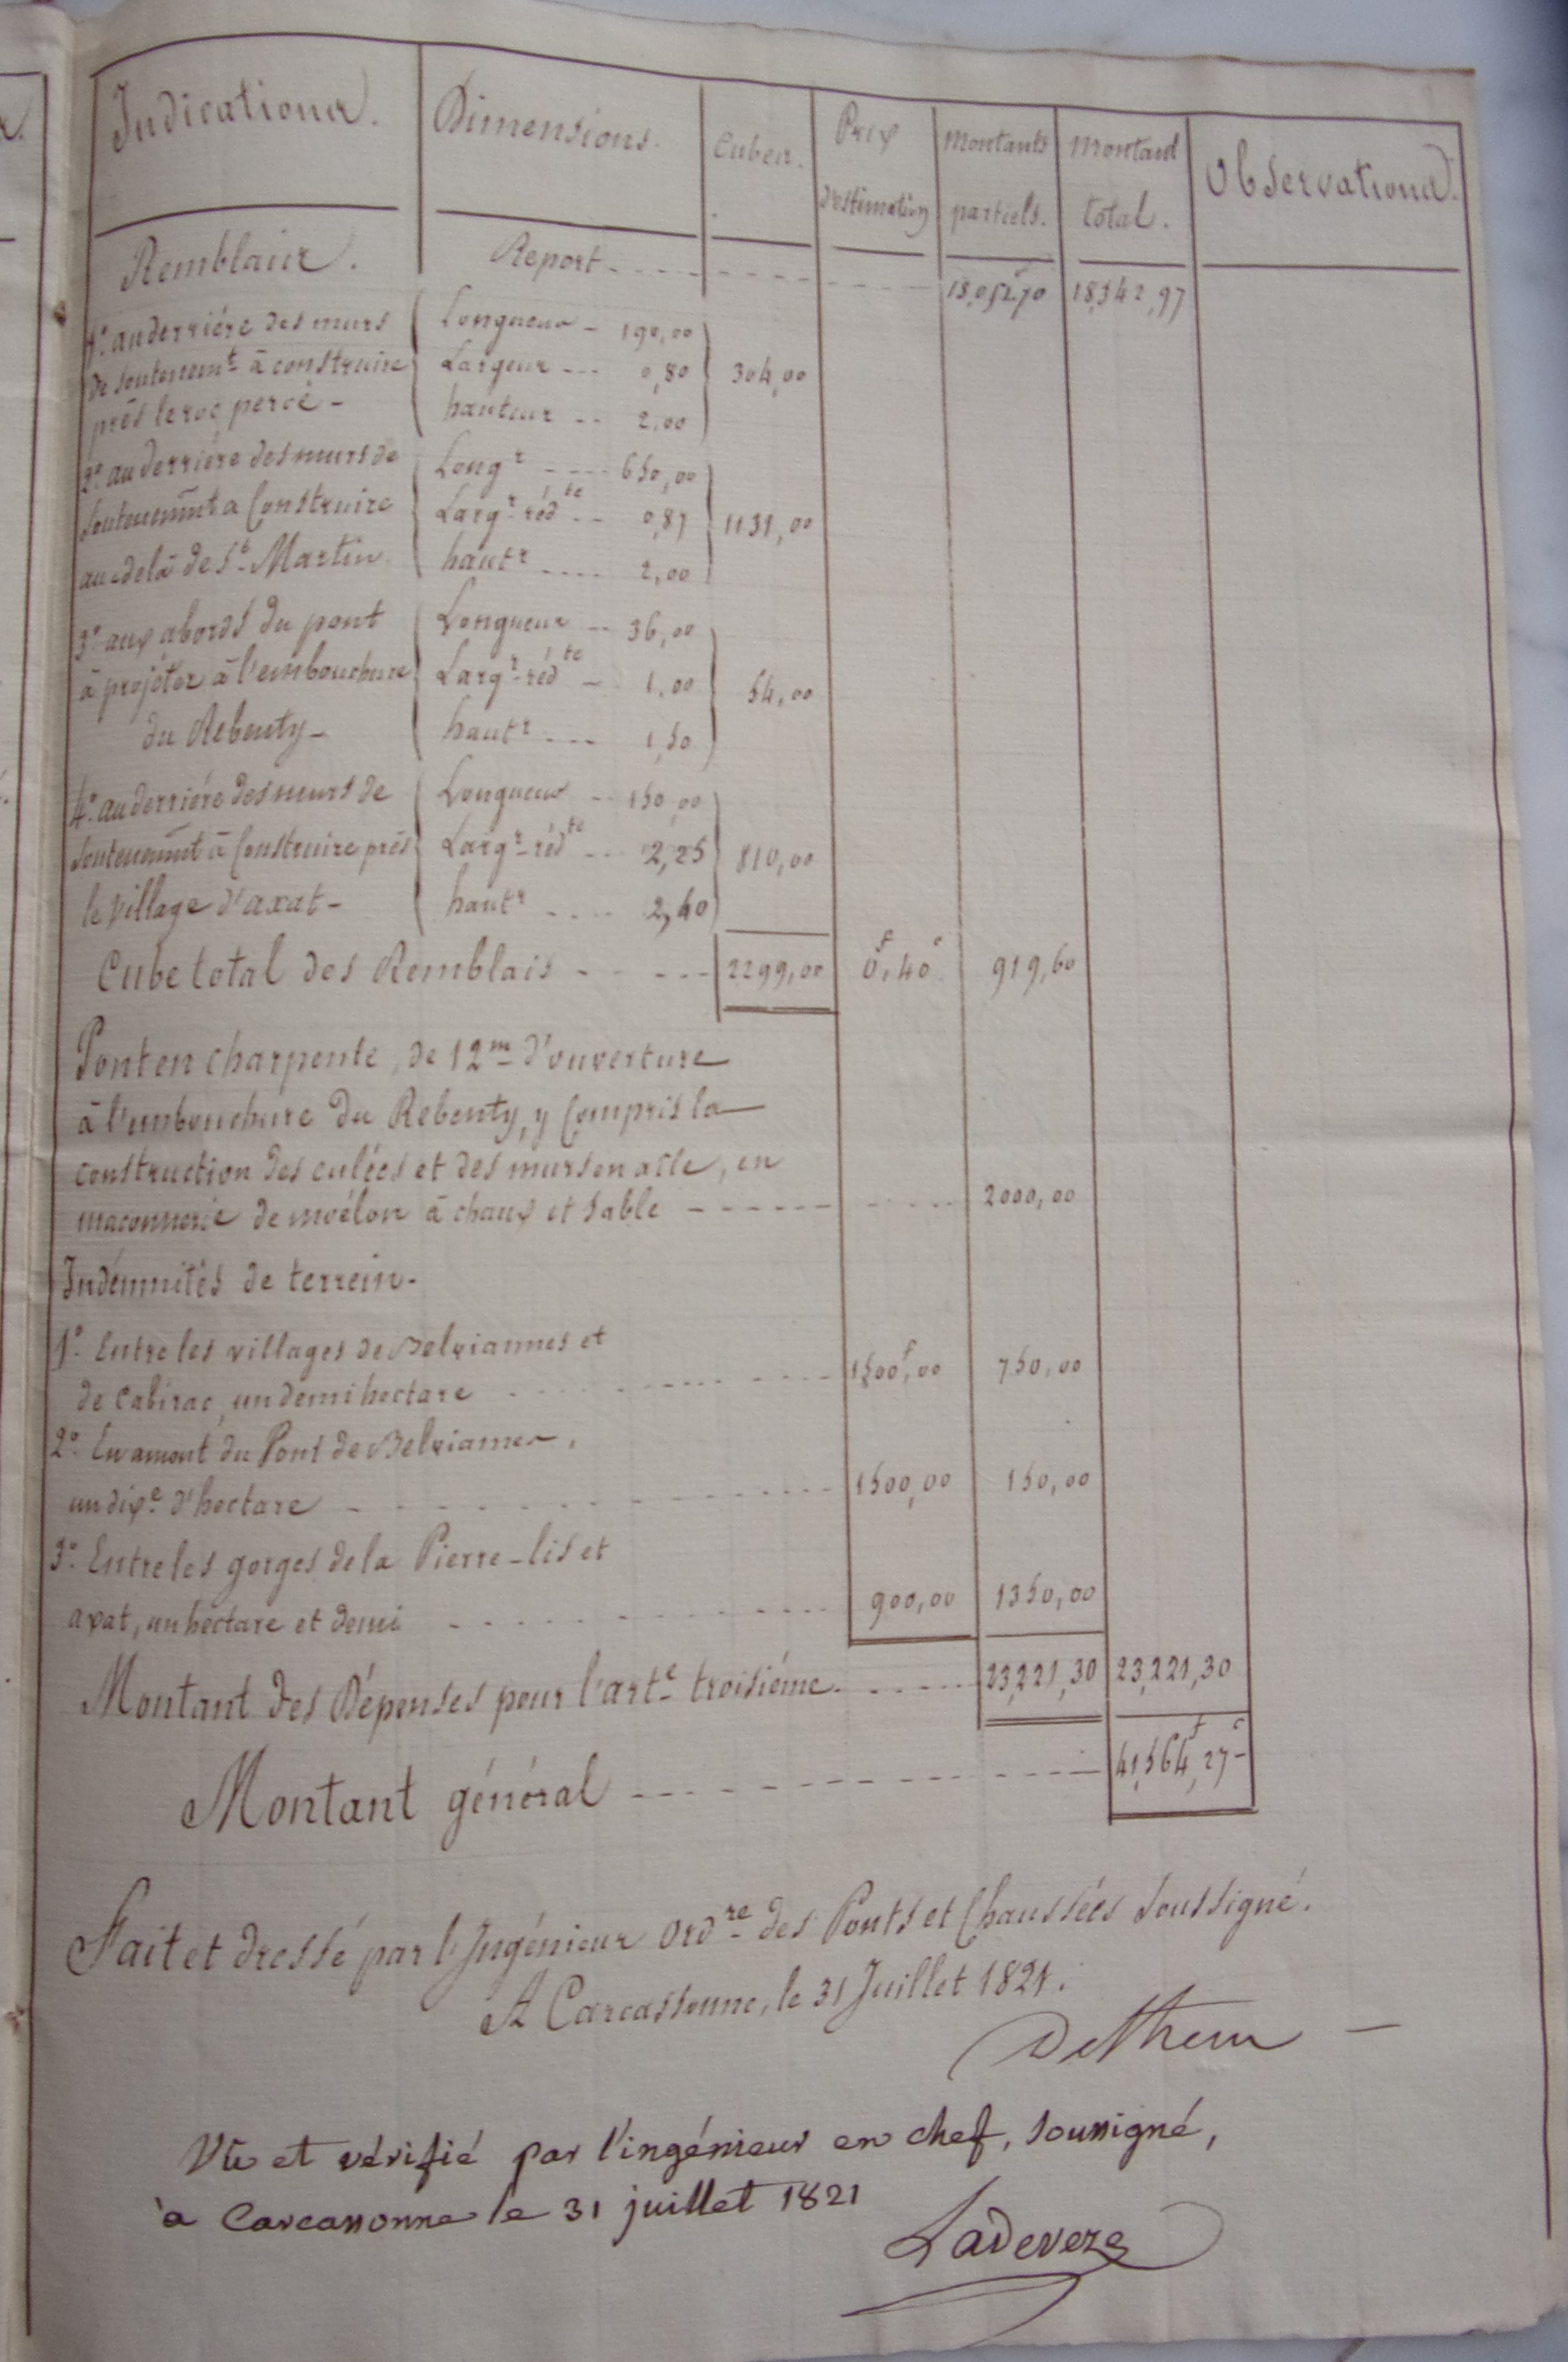 Indications.
Dimensions.
Cubes.
Prix d'estimation
Montants partiels.
Montant total.
Observations.
Remblais.
Report 18,051,70 18,342,97
1° au derrière des murs
de soutenemt à construire
près le roc percé
Longueur 190,00
Largeur 0,80
hauteur 2,00
304,00
2° au derrière des murs de
soutenemnt a Construire
au delà de St Martin.
Longr 650,00
Largr rédte 0,87
hautr 2,00
1131,00
3° aux abords du pont
à projèter à l'embouchure
du Rebenty
Longueur 36,00
Largr rédte 1,00
hautr 1,50
54,00
4° au derrière des murs de
soutenemnt à Construire près
le village d'axat
Longueur 150,00
Largr rédte 2,25
hautr 2,40
810,00
Cube total des Remblais 2299,00 0f,40c 919,60
Pont en charpente, de 12m d'ouverture
à l'embouchure du Rebenty, y Compris la
construction des culées et des murs en aîle, en
maconnerie de moëlon à chaux et sable 2000,00
Indémnités de terrein.
1° Entre les villages de Belviannes et
de Cabirac, un demi hectare 1500f,00 750,00
2° En amont du Pont de Belvianes,
un dixe d'hectare 1500,00 150,00
3° Entre les gorges de la Pierre-lis et
axat, un hectare et demi 900,00 1350,00
Montant des Dépenses pour l'arte troisiéme 23,221,30 23,221,30
Montant général 41,564f,27c
Fait et dressé par l'Ingénieur Ordre des Ponts et Chaussées soussigné.
A Carcassonne, le 31 Juillet 1821.
Vû et vérifié par l'ingénieur en chef, soussigné,
à Carcassonne le 31 juillet 1821
Ladeveze